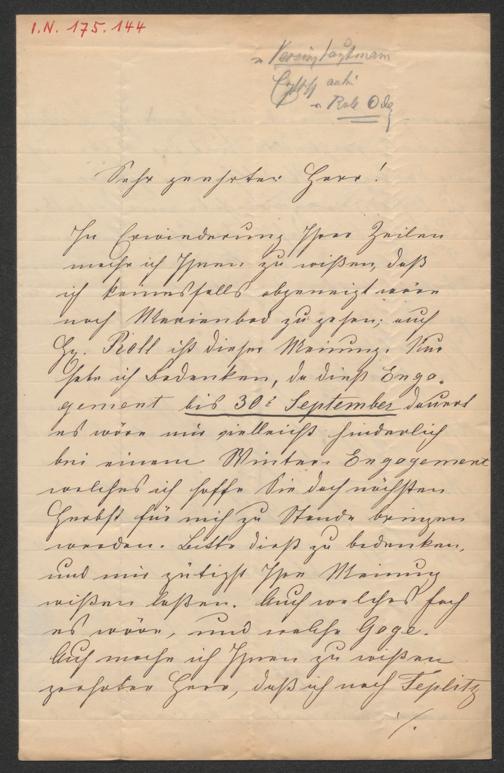 I.N. 175.144
Sehr geehrter Herr!
In Erwiederung Ihrer Zeilen
mache ich Ihnen zu wißen, daß
ich keinesfalls abgeneigt wäre
nach Marienbad zu gehen; auch
Hr. Roll ist dieser Meinung. Nur
habe ich Bedenken, da dieß Enga-
gement bis 30t September dauert
es wäre mir vielleicht hinderlich
bei einem Winter-Engagement
welches ich hoffe Sie doch nächsten
Herbst für mich zu Stande bringen
werden. Bitte dieß zu bedenken,
und mir gütigst Ihre Meinung
wißen laßen. Auch welches Fach
es wäre, und welche Gage.
Auch mache ich Ihnen zu wißen
geehrter Herr, daß ich nach Teplitz
./.